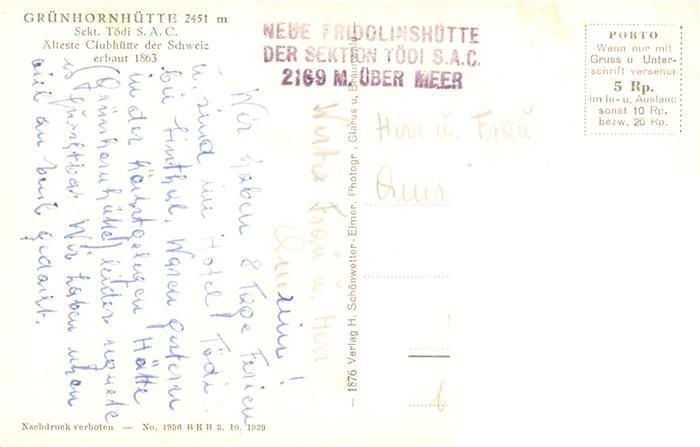 GRÜNHORNHÜTTE 2451 m
Sekt. Tödi S. A. C.
Älteste Clubhütte der Schweiz
erbaut 1863
NEUE FRIDOLINSHÜTTE
DER SEKTION TÖDI S.A.C.
2169 M. ÜBER MEER
PORTO
Wenn nur mit
Gruss u. Unter-
schrift versehen
5 Rp.
im In- u. Ausland
sonst 10 Rp.
bezw. 20 Rp.
Herr u. Frau
Frau u. Herr
Wir haben 8 Tage Ferien
u. sind im Hotel Tödi
bei Linthal. Waren gestern
in der Hütte
(Grünhornhütte) leider regnete
es Wir haben
gedacht.
— 1876 Verlag H. Schönwetter-Elmer, Photogr., Glarus u. Braunwald
Nachdruck verboten — No. 1956 BRB 3. 10. 1939